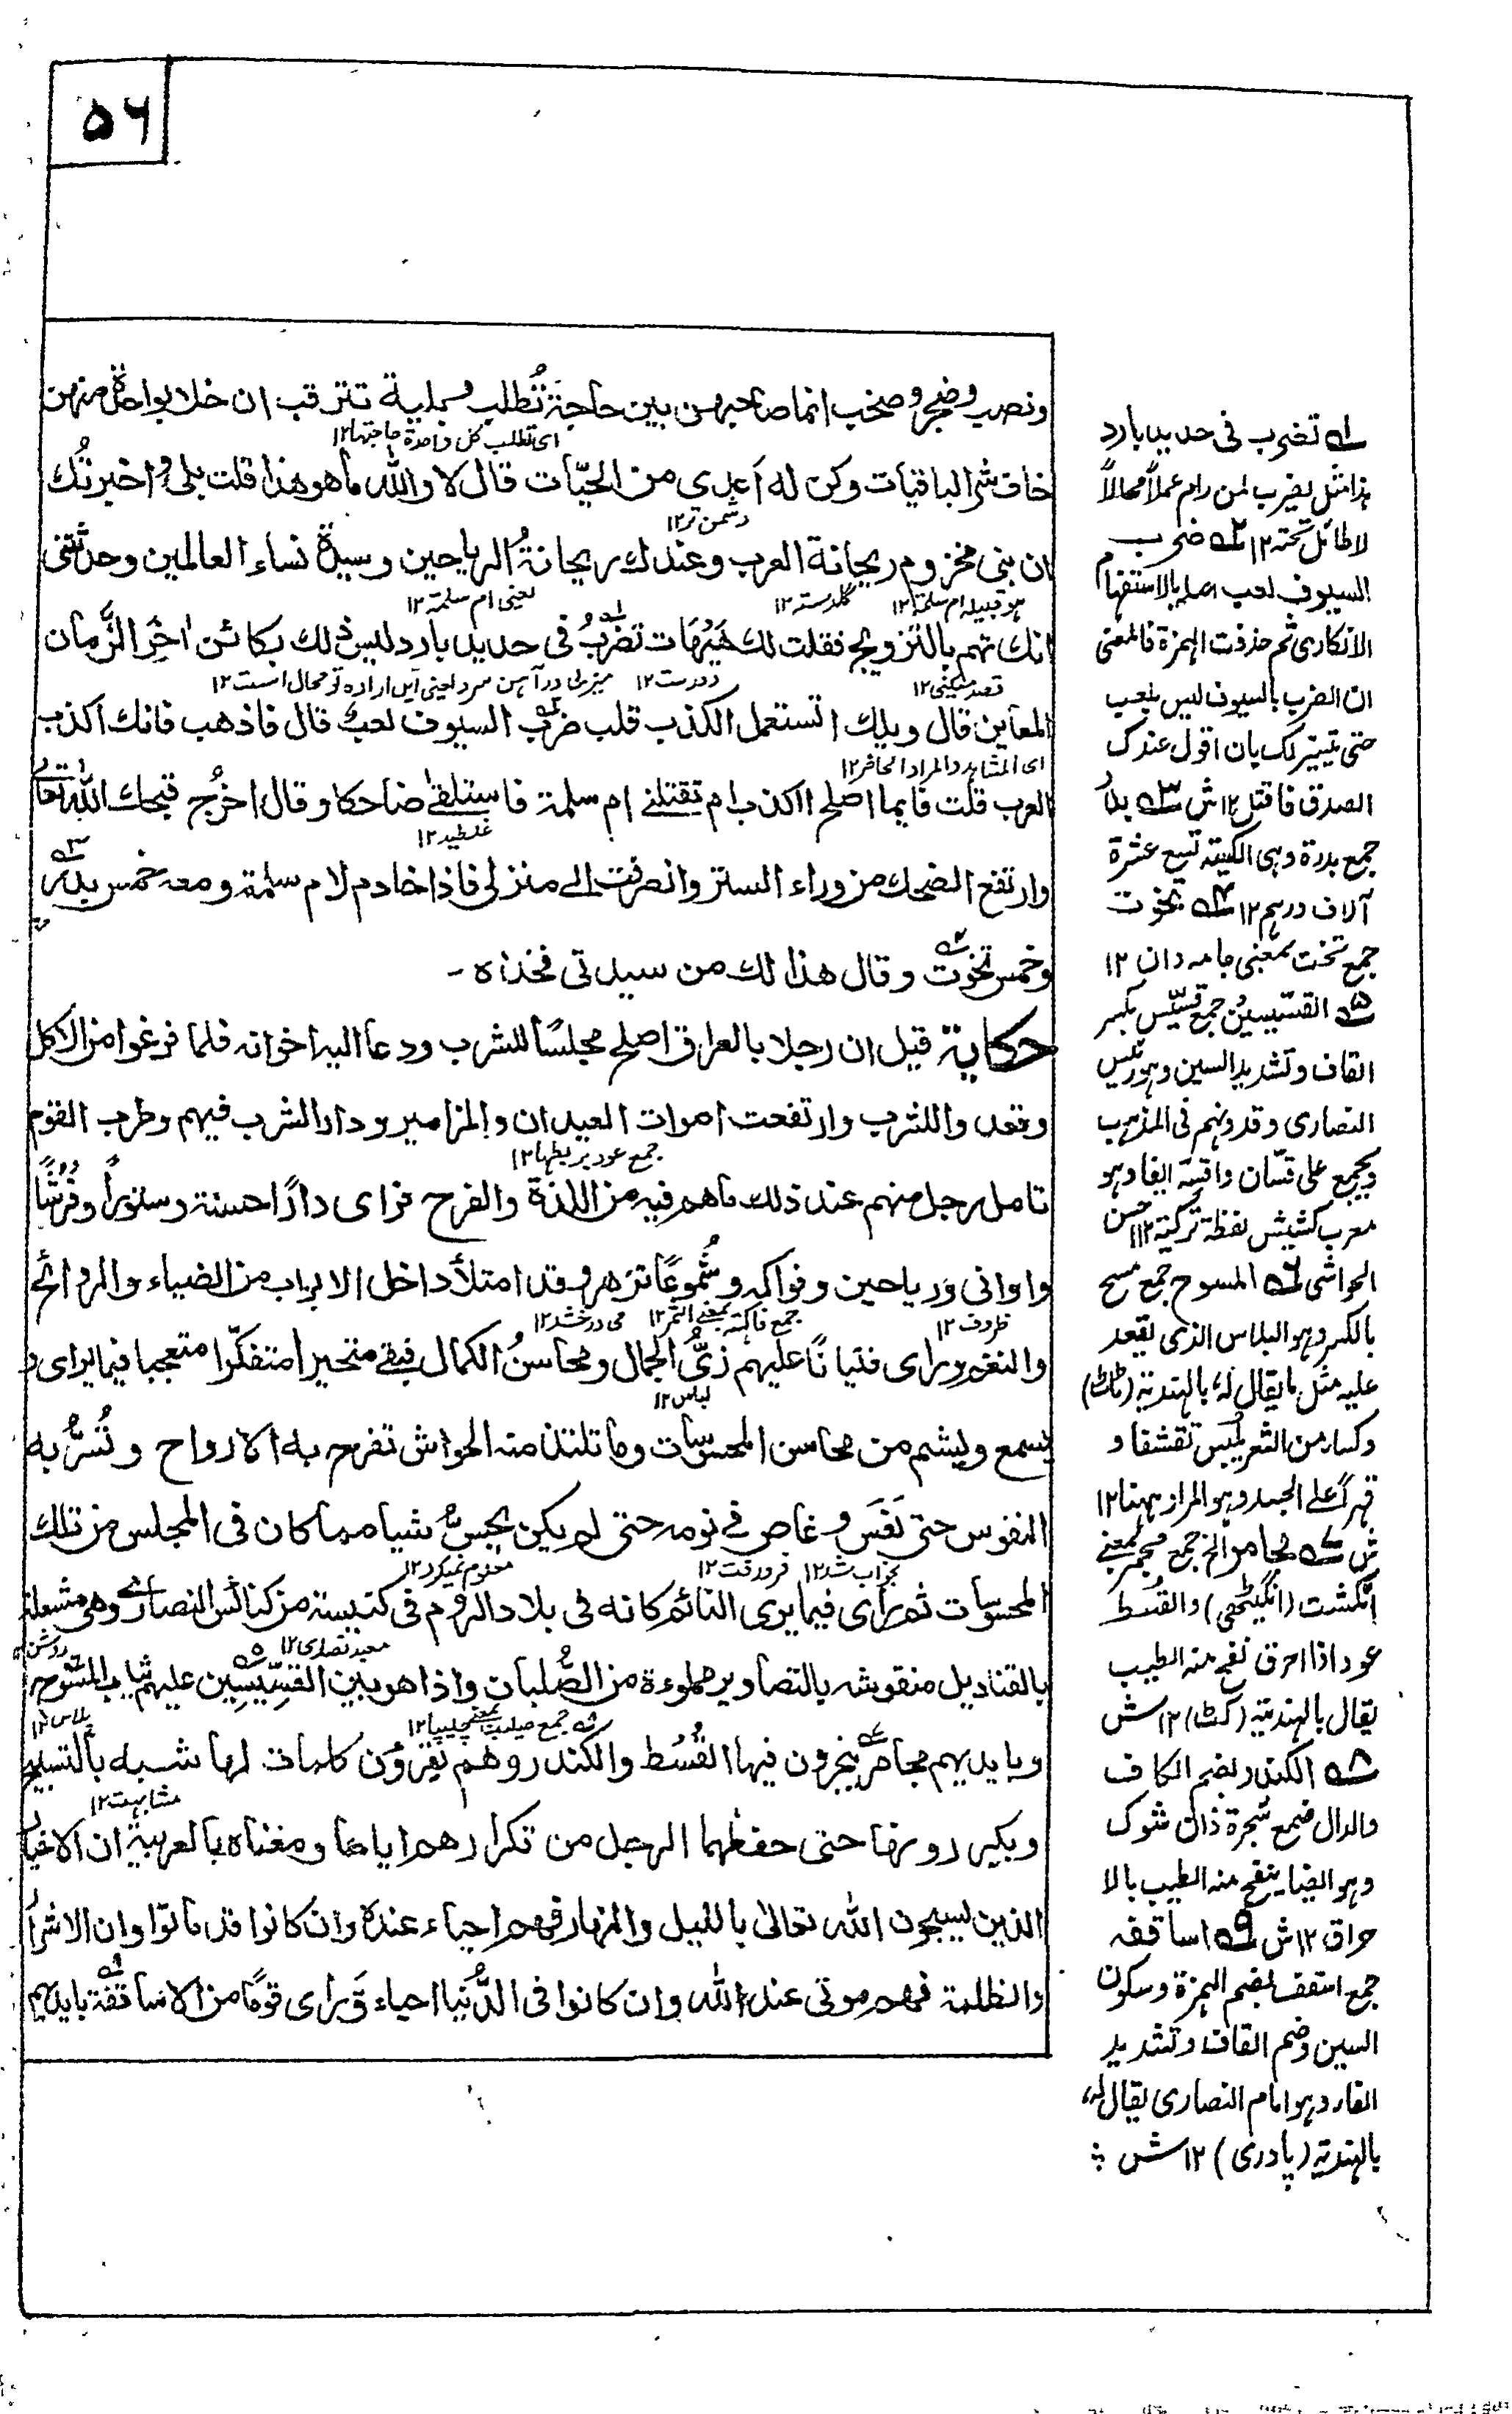 ٥٦
ونصب وضجر وصخب انما صاحبهن بين حاجة تُطلب وبلية تترقب ان خلا بواحدة منهن
اى تطلب كل واحدة حاجتها ١٢
خاف شر الباقيات وكن له اعدى من الحيّات قال لا والله ما هو هذا قلت بلى واخبرتُك
دشمن تر ١٢
ان بنى مخزوم ريحانة العرب وعندك ريحانةُ الرياحين وسيدة نساء العالمين وحدثتنى
هو قبيله ام سلمة ١٢ گلدسته ١٢ يعنى ام سلمة ١٢
انك تهم بالتزويج فقلت لك هَيْهَات تضربُ فى حديد بارد ليس ذلك بكائن اٰخِر الزّمان
قصد ميكنى ١٢ دورست ١٢ ميزنى در آهن سرد يعنى اين اراده تو محال است ١٢
المعاين قال ويلك اتستعمل الكذب قلب ضرب السيوف لعبك قال فاذهب فانك اكذب
اى المشاهد والمراد الحاضر ١٢
العرب قلت فايما اصلح ااكذب ام تقتلنى ام سلمة فاستلقى ضاحكا وقال اخرُج قبحك الله تعالى
غلطيد ١٢
وارتفع الضحك من وراء الستر وانصرفت الى منزلى فاذا خادم لام سلمة ومعه خمس بدر
وخمس تخوت وقال هذا لك من سيدتى فخذاه -
حكاية قيل ان رجلا بالعراق اصلح مجلسًا للشرب ودعا اليه اخوانه فلما فرغوا من الاكل
وقعدوا للشرب وارتفعت اصوات العيدان والمزامير ودار الشرب فيهم وطرب القوم
جمع عود بربطها ١٢
تامل رجل منهم عند ذلك ما هم فيه من اللذة والفرح فراى دارًا حسنة وستورًا وفرشًا
واوانى ورياحين وفواكه وشُموعًا تزهر وقد امتلأ داخل الابواب من الضياء والروائح
ظروف ١٢ جمع فاكهة بمعنى الثمر ١٢ مى درخشد ١٢
والنغم وراى فتيانًا عليهم زىُّ الجمال ومحاسنُ الكمال فبقى متحيرا متفكّرا متعجبا فيما يراى و
لباس ١٢
يسمع ويشم من محاسن المحسوسات وما تلتذ منه الحواس تفرح به الارواح وتُسرُّ به
النفوس حتى نَعَسَ وغاص فى نومه حتى لم يكن يحِسُّ شيا مما كان فى المجلس من تلك
بخواب شد ١٢ فرو رفت ١٢ معلوم نميكرد ١٢
المحسوسات ثم راى فيما يرى النائم كانه فى بلاد الروم فى كنيسة من كنائس النصارى وهى مشعلة
معبد نصارى ١٢ روشن
بالقناديل منقوشه بالتصاوير مملوءة من الصُّلبان واذا هو بين القسِّيسِين عليهم ثياب المسُوح
جمع صليب بمعنى چليپا ١٢ پلاس ١٢
وبايديهم مجامر يبخرون فيها القُسُط والكندر وهم يقرؤن كلمات لها شبه بالتسبيح
مشابهت ١٢
ويكررونها حتى حفظها الرجل من تكرارهم اياها ومعناه بالعربية ان الاخيار
الذين يسبحون الله تعالى بالليل والنهار فهم احياء عنده وان كانوا قد ماتوا وان الاشرار
والظلمة فهم موتى عند الله وان كانوا فى الدُّنيا احياء وراى قومًا من الاساقفة بايديهم
١ تضرب فى حديد بارد
هذا مثل يضرب لمن رام عملاً محالاً
لا طائل تحته ١٢ ٢ ضرب
السيوف لعب اصله بالاستفهام
الانكارى ثم حذفت الهمزة فالمعنى
ان الضرب بالسيوف ليس بلعب
حتى تيسر لك بان اقول عندك
الصدق فاقتل ١٢ ش ٣ بدر
جمع بدرة وهى الكيسة تسع عشرة
آلاف درهم ١٢ ٤ تخوت
جمع تخت بمعنى جامه دان ١٢
٥ القسيسين جمع قسّيس بكسر
القاف وتشديد السين وهو رئيس
النصارى وقدوتهم فى المذهب
ويجمع على قسّان واقسّة ايضا وهو
معرب كشيش لفظة تركية ١٢ حسن
الحواشى ٦ المسوح جمع مسح
بالكسر وهو البلاس الذى يقعد
عليه مثل ما يقال له بالهندية (ٹاٹ)
وكساء من الشعر يلبس تقشفا و
قهرًا على الجسد وهو المراد ههنا ١٢
ش ٧ مجامر الخ جمع مجمر بمعنى
انگشت (انگیٹھی) والقسط
عود اذا احرق نفح منه الطيب
يقال بالهندية (کٹ) ١٢ ش
٨ الكندر بضم الكاف
والدال صمغ شجرة ذات شوك
وهو ايضا ينفح منه الطيب بالا
حراق ١٢ ش ٩ اساقفه
جمع اسقف بضم الهمزة وسكون
السين وضم القاف وتشديد
الفاء وهو امام النصارى يقال له
بالهندية (پادرى) ١٢ ش